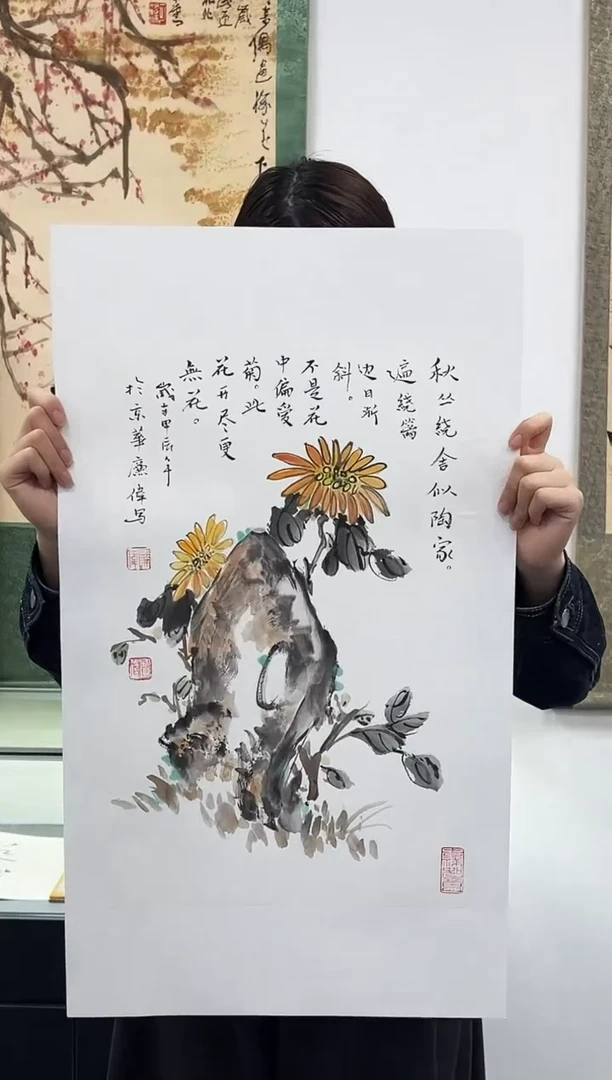 秋丛绕舍似陶家。
遍绕篱
边日渐
斜。
不是花
中偏爱
菊。此
花开尽、更
無花。
歲在甲辰年
於京華廉偉写